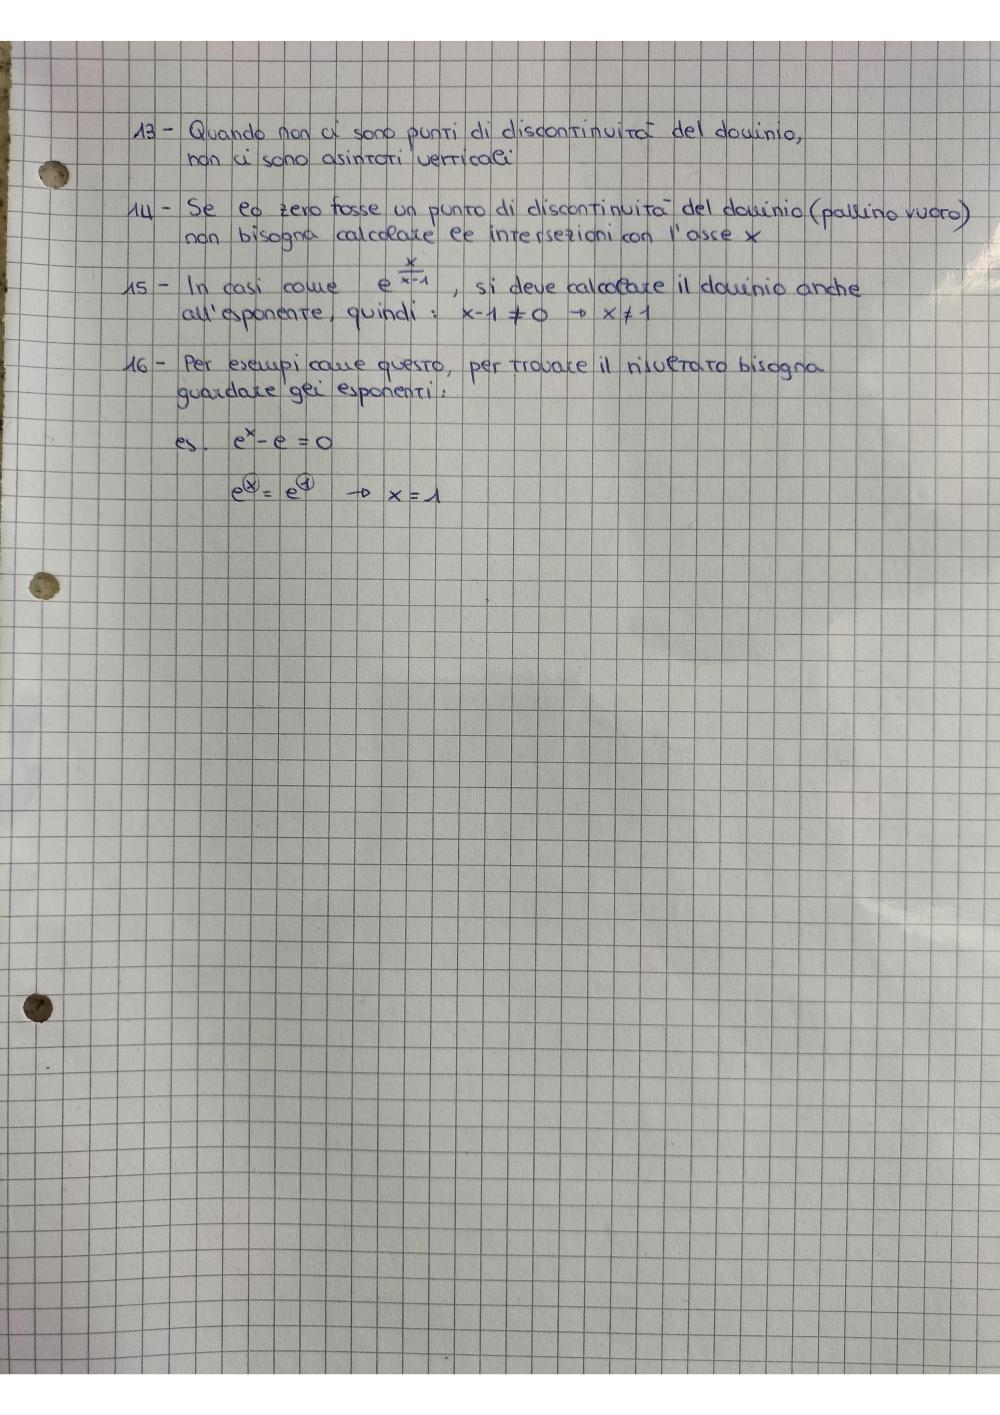 13 - Quando non ci sono punti di discontinuità del dominio,
non ci sono asintoti verticali
14 - Se lo zero fosse un punto di discontinuità del dominio (pallino vuoto)
non bisogna calcolare le intersezioni con l'asse x
15 - In casi come e^(x/(x-1)), si deve calcolare il dominio anche
all'esponente, quindi: x-1 ≠ 0 → x ≠ 1
16 - Per esempi come questo, per trovare il risultato bisogna
guardare gli esponenti:
es. eˣ - e = 0
eˣ = e¹ → x = 1